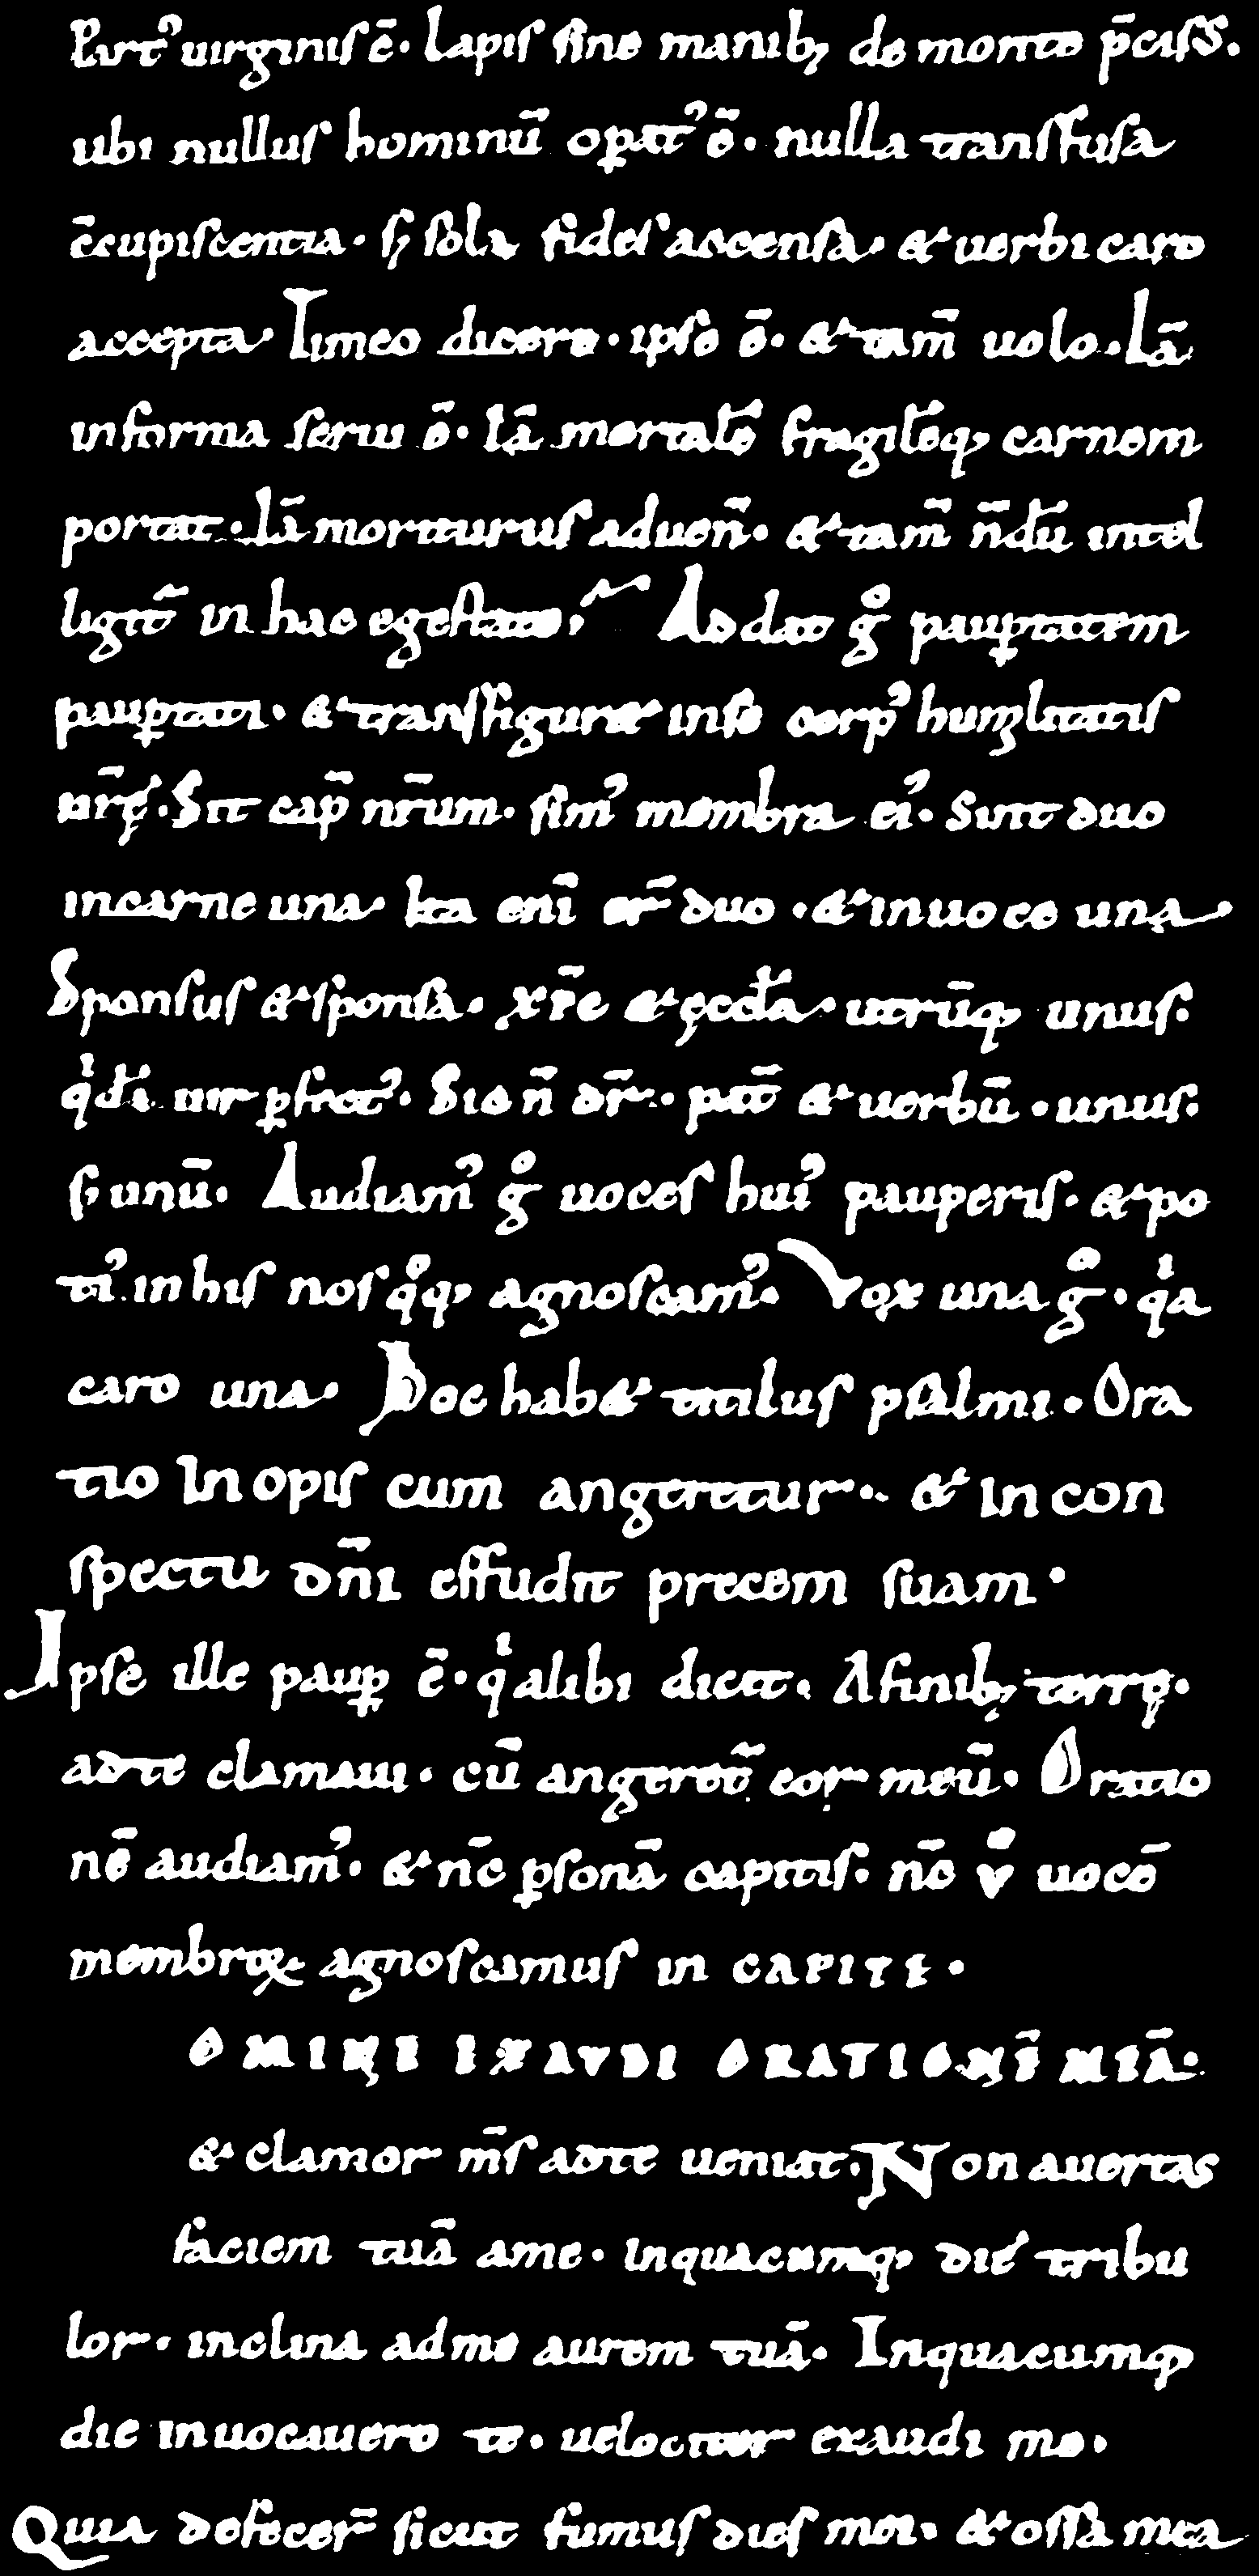 Part᾽ uirginis ē. lapis sine manib; de monte p̄ciss᾽.
ubi nullus hominū opat᾽ ē. nulla transfusa
c̄cupiscentia. s; sola fides accensa. & uerbi caro
accepta. Timeo dicere. ipse ē. & tam̄ uolo. Iā
in forma serui ē. iā mortalē fragilēq; carnem
portat. iā moriturus aduen̄. & tam̄ n̄dū intel
ligit᷑ in hac egestate. Addat gͦ paup̲tatem
paup̲tati. & transfiguret in se corp᾽ humilitatis
nr̄ę. Sit cap̄ nr̄um. sim᾽ membra ei᾽. Sint duo
in carne una. Ita eni̅ er̄ duo. & in uoce una.
Sponsus & sponsa. xp̄c & ęccła. utrūq; unus.
qⁱdā uir p̲fect᾽. Sic n̄ dr̄. pat̄ & uerbū. unus.
s; unū. Audiam᾽ gͦ uoces hui᾽ pauperis. & po
ti᾽ in his nos qͦq; agnoscam᾽. Vox una gͦ. qⁱa
caro una. Hoc hab& titulus psalmi. Ora
tio inopis cum angeretur. & in con
spectu dn̄i effudit precem suam.
Ipse ille paup̲ ē. qⁱ alibi dicit. A finib; terrę.
ad te clamaui. cū angeret᷑ cor meū. Oratio
nē audiam᾽. & nc̄ p̲sonā capitis. nc̄ vͦ uocē
membroꝝ agnoscamus in CAPITE.
OMINE EXAVDI ORATIONĒ MEĀ.
& clamor ms̄ ad te ueniat. Non auertas
faciem tuā a me. in quacumq; die tribu
lor. inclina ad me aurem tuā. In quacumq;
die inuocauero te. uelociter exaudi me.
Quia defecer̄ sicut fumus dies mei. & ossa mea